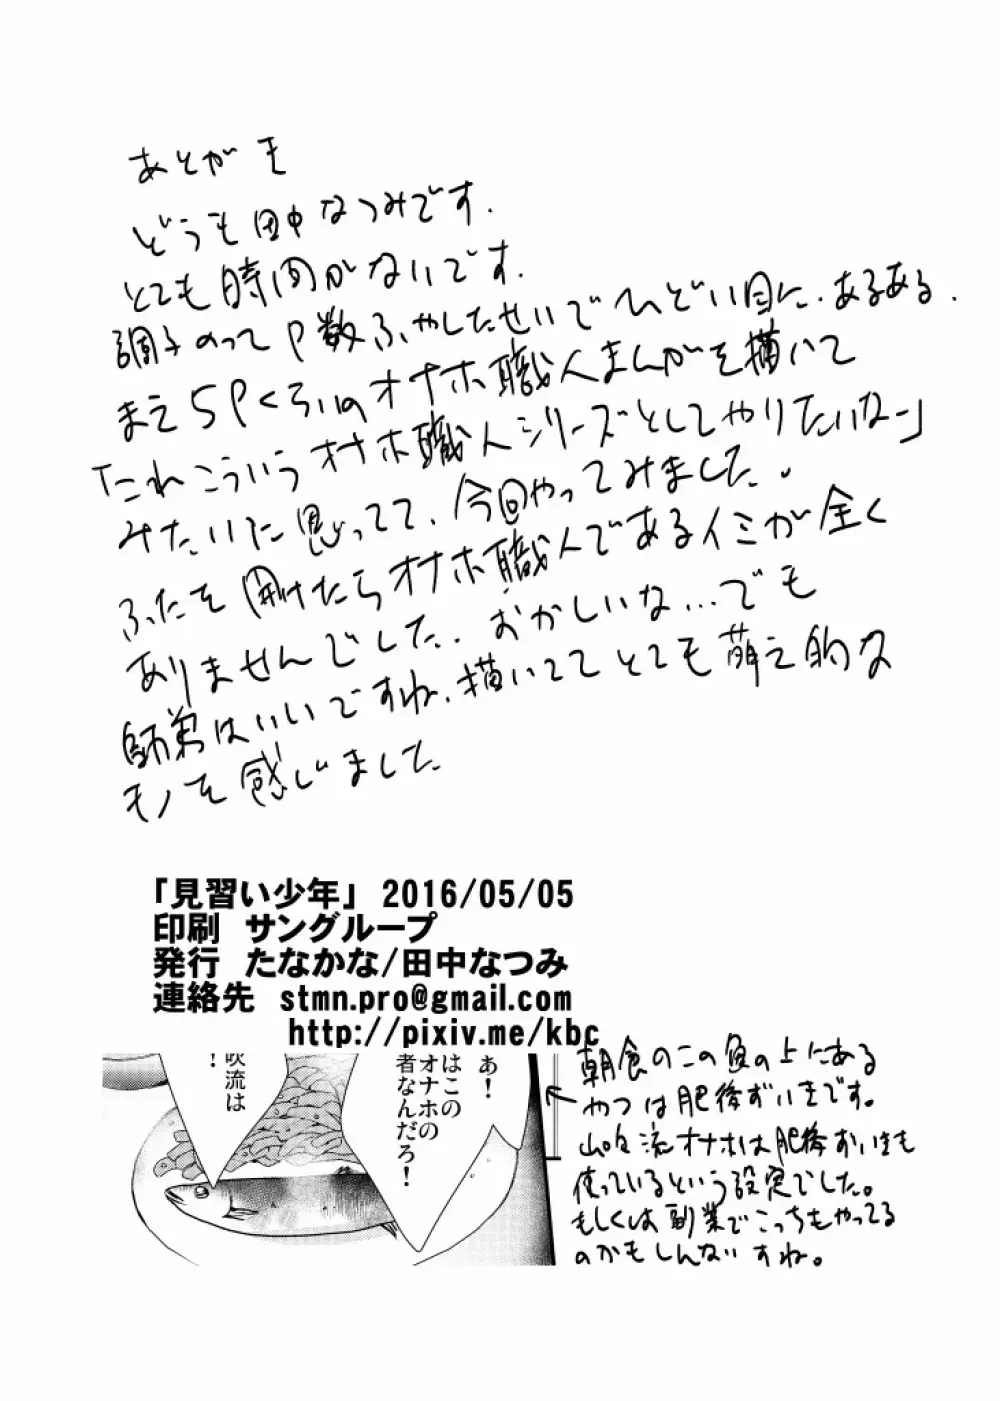 あとがき
どうも田中なつみです.
とても時間がないです.
調子のってP数ふやしたせいでひどい目に.あるある.
まえ5Pくらいのオナホ職人まんがを描いて
「これこういうオナホ職人シリーズとしてやりたいなー」
みたいに思ってて、今回やってみました.
ふたを開けたらオナホ職人であるイミが全く
ありませんでした.おかしいな...でも
師弟はいいですね.描いててとても萌え的な
モノを感じました
「見習い少年」 2016/05/05
印刷 サングループ
発行 たなかな/田中なつみ
連絡先 stmn.pro@gmail.com
http://pixiv.me/kbc
あ!
はこの
オナホの
者なんだろ!
吹流は
!
朝食のこの魚の上にある
やつは肥後ずいきです。
流オナホは肥後ずいきも
使っているという設定でした。
もしくは副業でこっちもやってる
のかもしんないすね。